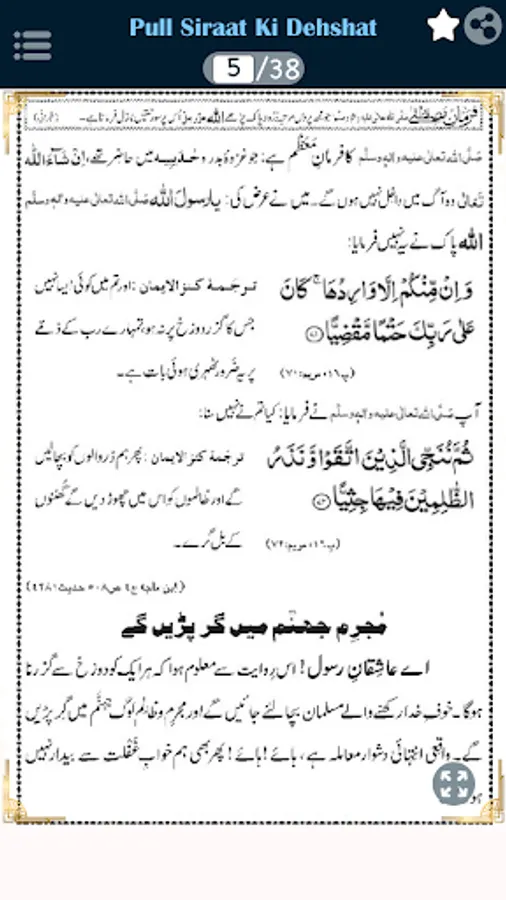 Pull Siraat Ki Dehshat
5/38
فرمانِ مصطفےٰ
صَلَّی اللہُ تعالٰی علیہ واٰلہٖ وسلَّم کا فرمانِ مُعَظَّم ہے: جو غزوۂ بدر و حُدَیبِیہ میں حاضر تھے، اِنْ شَآءَاللہ
تَعَالٰی وہ آگ میں داخِل نہیں ہوں گے۔ میں نے عرض کی: یارسولَ اللہ صَلَّی اللہُ تعالٰی علیہ واٰلہٖ وسلَّم
اللہ پاک نے یہ نہیں فرمایا:
وَ اِنْ مِّنْكُمْ اِلَّا وَارِدُهَاۚ كَانَ
عَلٰى رَبِّكَ حَتْمًا مَّقْضِیًّا ﴿۷۱﴾
(پ۱۶، مریم: ۷۱)
ترجَمۂ کنزالایمان: اور تم میں کوئی ایسا نہیں
جس کا گزر دوزخ پر نہ ہو، تمہارے رب کے ذمّے
پر یہ ضَرور ٹھہری ہوئی بات ہے۔
آپ صَلَّی اللہُ تعالٰی علیہ واٰلہٖ وسلَّم نے فرمایا: کیا تم نے نہیں سنا:
ثُمَّ نُنَجِّی الَّذِیْنَ اتَّقَوْا وَّ نَذَرُ
الظّٰلِمِیْنَ فِیْهَا جِثِیًّا ﴿۷۲﴾
(پ۱۶، مریم: ۷۲)
ترجَمۂ کنزالایمان: پھر ہم ڈر والوں کو بچالیں
گے اور ظالموں کو اس میں چھوڑ دیں گے گھٹنوں
کے بل گرے۔
(ابن ماجہ ج۴ ص۵۰۸ حدیث ۴۲۸۱)
مُجرِم جہنَّم میں گر پڑیں گے
اے عاشقانِ رسول! اس رِوایت سے معلوم ہوا کہ ہر ایک کو دوزخ سے گزرنا
ہوگا۔ خوفِ خدا رکھنے والے مسلمان بچالئے جائیں گے اور مجرِم و ظالم لوگ جہنَّم میں گر پڑیں
گے۔ واقِعی انتِہائی دشوار معاملہ ہے، ہائے! ہائے! پھر بھی ہم خوابِ غَفلت سے بیدار نہیں
ہو